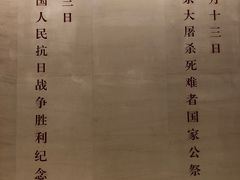 月十三日
京大屠杀死难者国家公祭
三日
国人民抗日战争胜利纪念